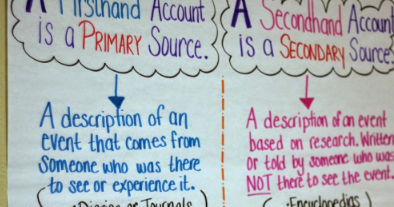 A Firsthand Account
is a PRIMARY Source.
A description of an
event that comes from
someone who was there
to see or experience it.
Journals
A Secondhand Account
is a SECONDARY Source.
A description of an event
based on research. Written
or told by someone who was
NOT there to see the event.
Encyclopedias